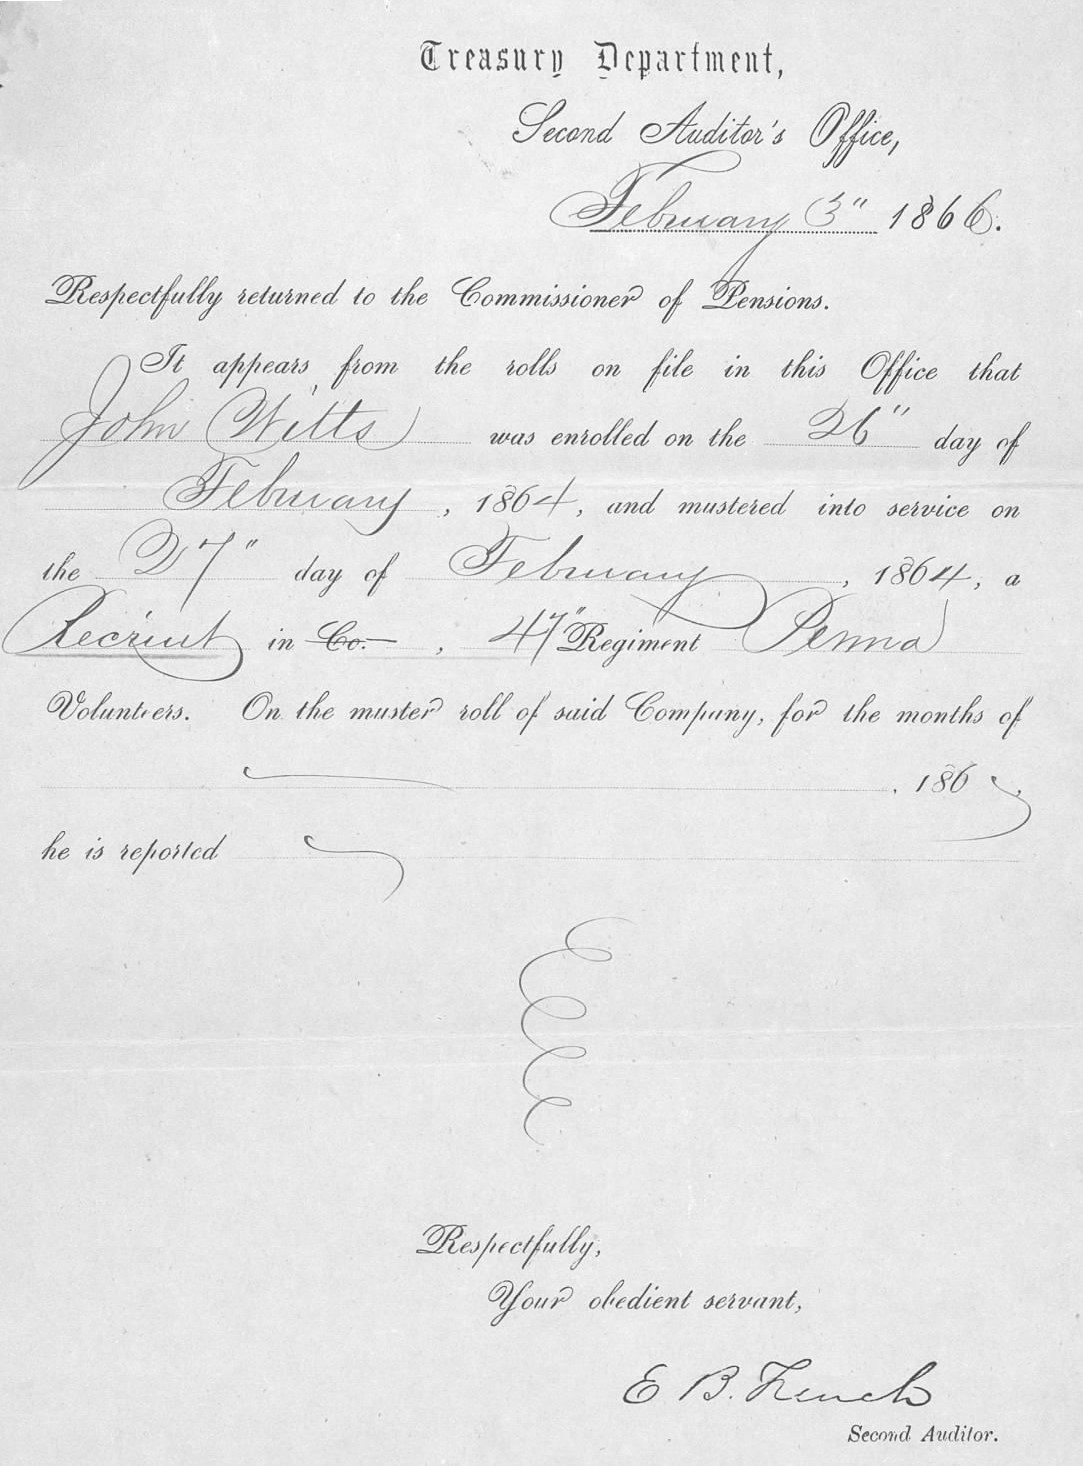 Treasury Department,
Second Auditor's Office,
February 3" 1866.
Respectfully returned to the Commissioner of Pensions.
It appears from the rolls on file in this Office that
John Witts was enrolled on the 26" day of
February, 1864, and mustered into service on
the 27" day of February, 1864, a
Recruit in Co. , 47" Regiment Penna
Volunteers. On the muster roll of said Company, for the months of
, 186 .
he is reported
Respectfully,
Your obedient servant,
E B. French
Second Auditor.